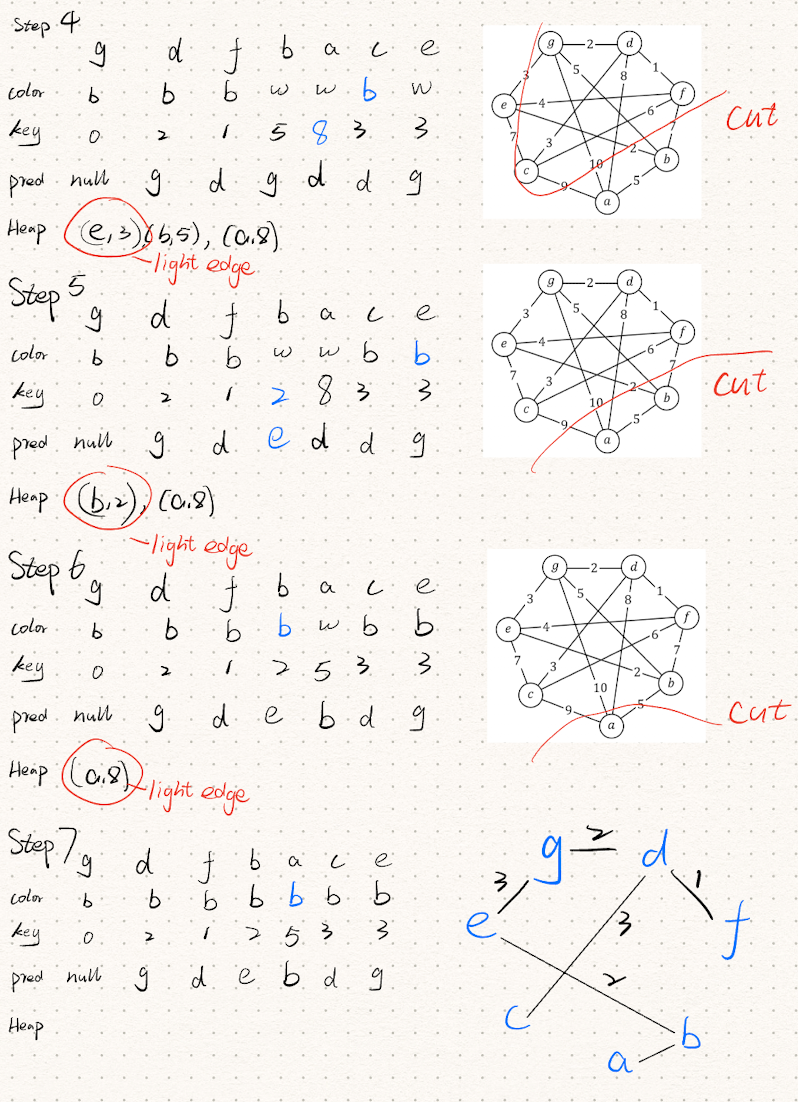 Step 4
g d f b a c e
color b b b w w b w
key 0 2 1 5 8 3 3
pred null g d g d d g
Heap (e,3), (b,5), (a,8)
light edge
g 2 d
3 5 8 1
e 4 6 f
7 3 2 7
c 10 b
9 a 5
cut
Step 5
g d f b a c e
color b b b w w b b
key 0 2 1 2 8 3 3
pred null g d e d d g
Heap (b,2), (a,8)
light edge
g 2 d
3 5 8 1
e 4 6 f
7 3 2 7
c 10 b
9 a 5
cut
Step 6
g d f b a c e
color b b b b w b b
key 0 2 1 2 5 3 3
pred null g d e b d g
Heap (a,8)
light edge
g 2 d
3 5 8 1
e 4 6 f
7 3 2 7
c 10 b
9 a 5
cut
Step 7
g d f b a c e
color b b b b b b b
key 0 2 1 2 5 3 3
pred null g d e b d g
Heap
g 2 d
3 1
e 3 f
2
c b
a